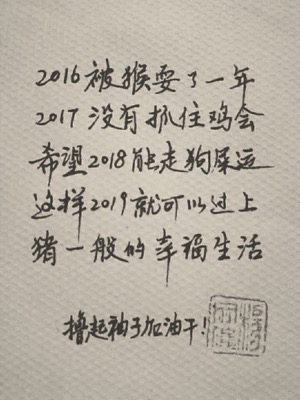 2016被猴耍了一年
2017没有抓住鸡会
希望2018能走狗屎运
这样2019就可以过上
猪一般的幸福生活
撸起袖子加油干!